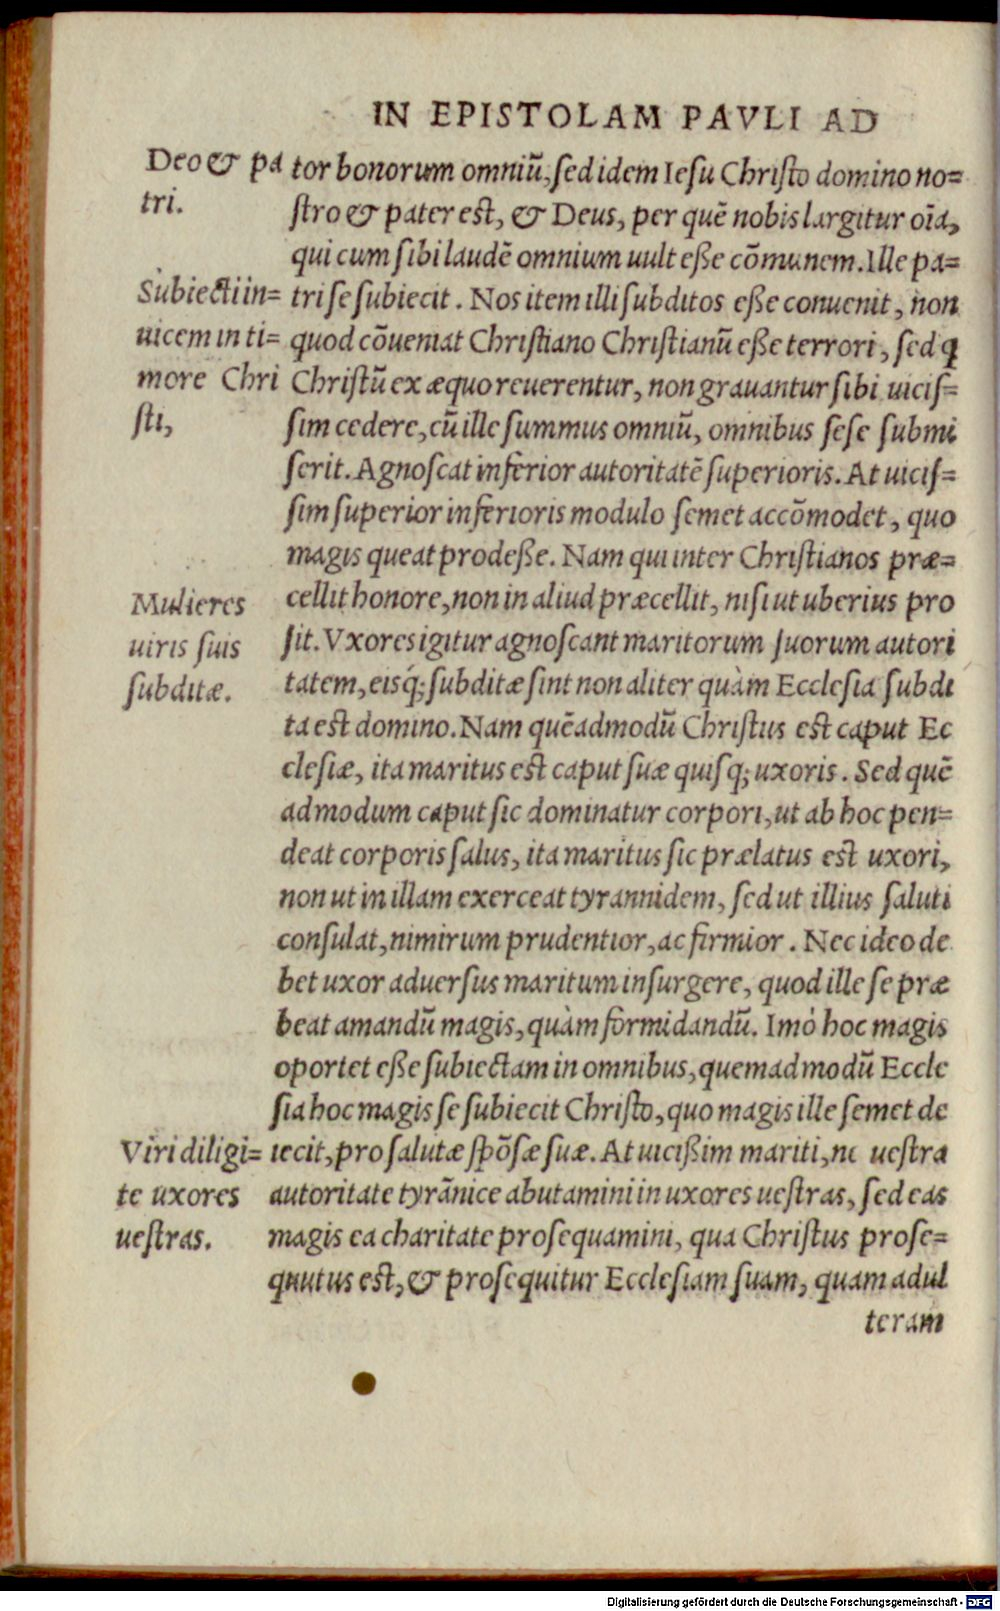 IN EPISTOLAM PAVLI AD
Deo & pa
tri.
Subiecti in=
uicem in ti=
more Chri
sti,
Mulieres
uiris suis
subditæ.
Viri diligi=
te uxores
uestras.
tor bonorum omniũ, sed idem Iesu Christo domino no=
stro & pater est, & Deus, per quẽ nobis largitur oĩa,
qui cum sibi laudẽ omnium uult eße cõmunem. Ille pa=
tri se subiecit. Nos item illi subditos eße conuenit, non
quod cõueniat Christiano Christianũ eße terrori, sed ꝙ
Christũ ex æquo reuerentur, non grauantur sibi uicis=
sim cedere, cũ ille summus omniũ, omnibus sese submi
serit. Agnoscat inferior autoritatẽ superioris. At uicis=
sim superior inferioris modulo semet accõmodet, quo
magis queat prodeße. Nam qui inter Christianos præ=
cellit honore, non in aliud præcellit, nisi ut uberius pro
sit. Vxores igitur agnoscant maritorum suorum autori
tatem, eisq́; subditæ sint non aliter quàm Ecclesia subdi
ta est domino. Nam quẽadmodũ Christus est caput Ec
clesiæ, ita maritus est caput suæ quisq; uxoris. Sed quẽ
admodum caput sic dominatur corpori, ut ab hoc pen=
deat corporis salus, ita maritus sic prælatus est uxori,
non ut in illam exerceat tyrannidem, sed ut illius saluti
consulat, nimirum prudentior, ac firmior. Nec ideo de
bet uxor aduersus maritum insurgere, quod ille se præ
beat amandũ magis, quàm formidandũ. Imò hoc magis
oportet eße subiectam in omnibus, quemadmodũ Eccle
sia hoc magis se subiecit Christo, quo magis ille semet de
iecit, pro salutæ spõsæ suæ. At uicißim mariti, ne uestra
autoritate tyrãnice abutamini in uxores uestras, sed eas
magis ea charitate prosequamini, qua Christus prose=
quutus est, & prosequitur Ecclesiam suam, quam adul
teram
Digitalisierung gefördert durch die Deutsche Forschungsgemeinschaft - DFG